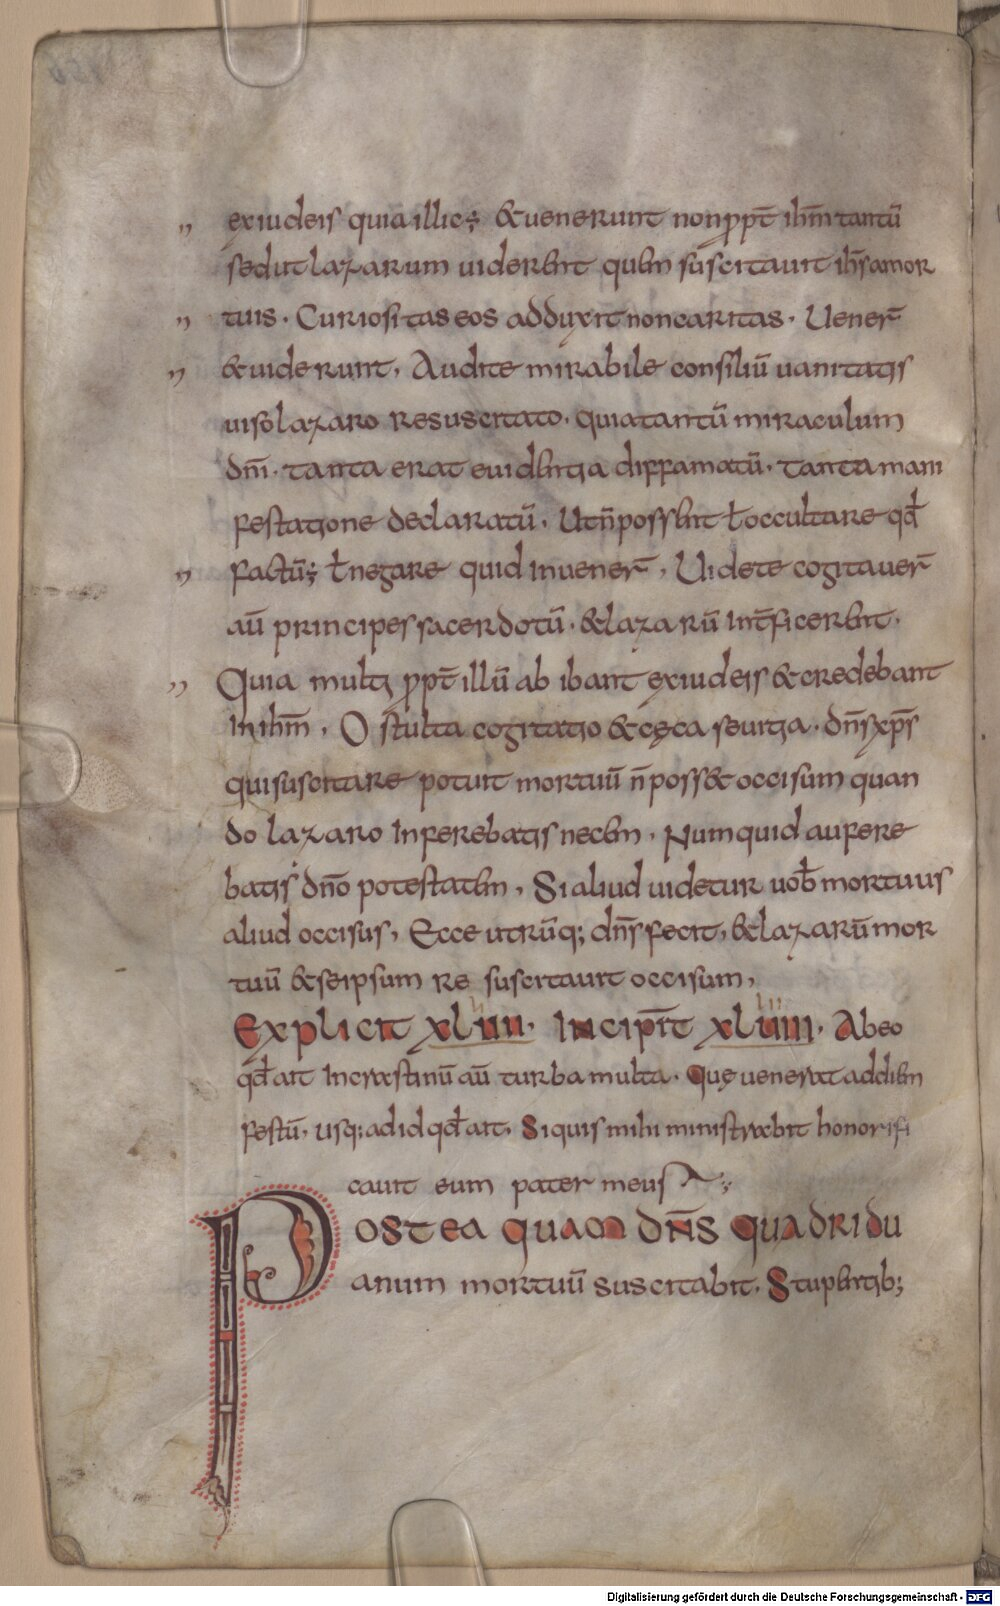 exiudeis quia illic; &uenerunt non ꝓpt̄ ih̄m tantū
sed ut lazarum uiderent quem suscitauit ih̄s amor
tuis. Curiositas eos adduxit non caritas. Uener̄
&uiderunt, Audite mirabile consiliū uanitatis
uiso lazaro resuscitato. quia tantū miraculum
dn̄i. tanta erat euidentia diffamatū. tanta mani
festatione declaratū, Ut n̄ possent ł occultare qđ
factū; ł negare quid inuener̄, Uidete cogitauer̄
aū principes sacerdotū. &lazarū int̄ficerent.
Quia multi ꝓpt̄ illū ab ibant exiudeis &credebant
In ih̄m, O stulta cogitatio &cęca seuitia. dn̄s xp̄s
qui suscitare potuit mortuū n̄ poss& occisum quan
do lazaro Inferebatis necem, Numquid aufere
batis dn̄o potestatem, Si aliud uidetur uob̄ mortuus
aliud occisus, Ecce utrūq; dn̄s fecit, &lazarū mor
tuū &seipsum re suscitauit occisum,
Explicit xluiii. Incipit̄ xluiiii. Ab eo
qđ ait In crastinū aū turba multa. Quę uenerat ad diem
festū, usq; ad id qđ ait, Si quis mihi ministrabit honorifi
cauit eum pater meus
Postea quam dn̄s quadridu
anum mortuū suscitabit, Stupentib;
Digitalisierung gefördert durch die Deutsche Forschungsgemeinschaft - DFG